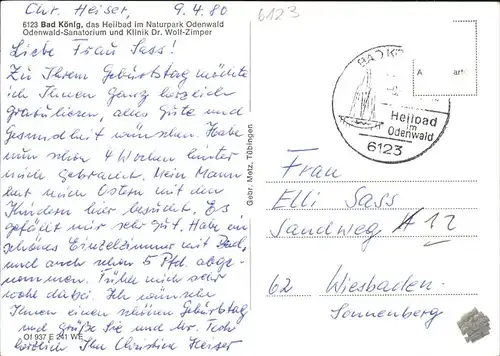 Chr. Heiser, 9.4.80
6123 Bad König, das Heilbad im Naturpark Odenwald
Odenwald-Sanatorium und Klinik Dr. Wolf-Zimper
Liebe Frau Sass!
Zu Ihrem Geburtstag möchte
ich Ihnen ganz herzlich
gratulieren, alles Gute und
Gesundheit wünschen. Habe
nun schon 4 Wochen hinter
mich gebracht. Mein Mann
hat mich Ostern mit den
Kindern hier besucht. Es
gefällt mir sehr gut. Habe ein
schönes Einzelzimmer mit Bad,
und auch schon 5 Pfd. abge-
nommen. Fühle mich sehr
wohl dabei. Ich wünsche
Ihnen einen schönen Geburtstag
und grüße Sie und Ihr
herzlich Ihre Christina Heiser
OI 937 E 241 WE
Gebr. Metz, Tübingen
6123
BAD K
Heilbad
im
Odenwald
6123
A arte
Frau
Elli Sass
Sandweg 12
62 Wiesbaden-
Sonnenberg